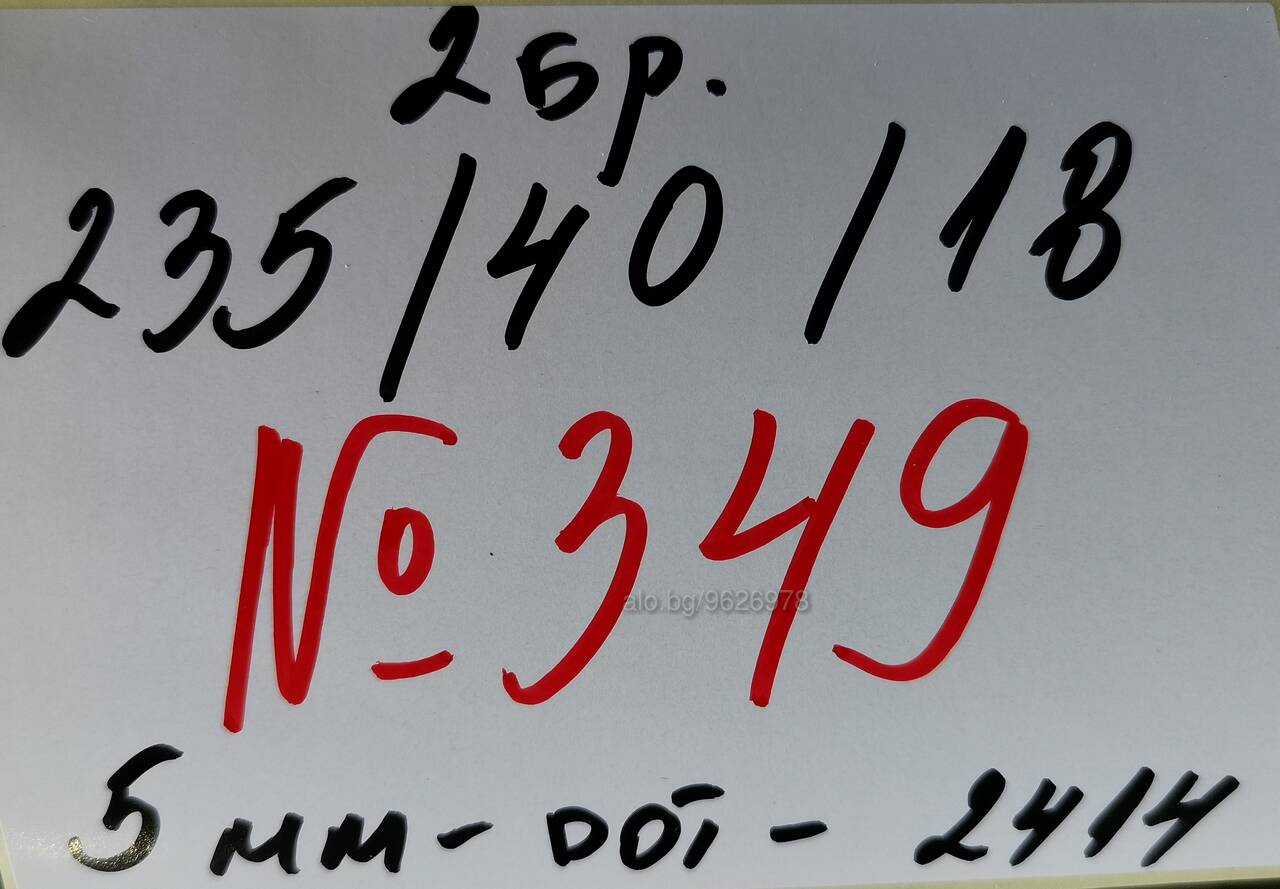 2 бр.
235/40/18
№ 349
alo.bg/9626978
5 мм - DOT - 2414